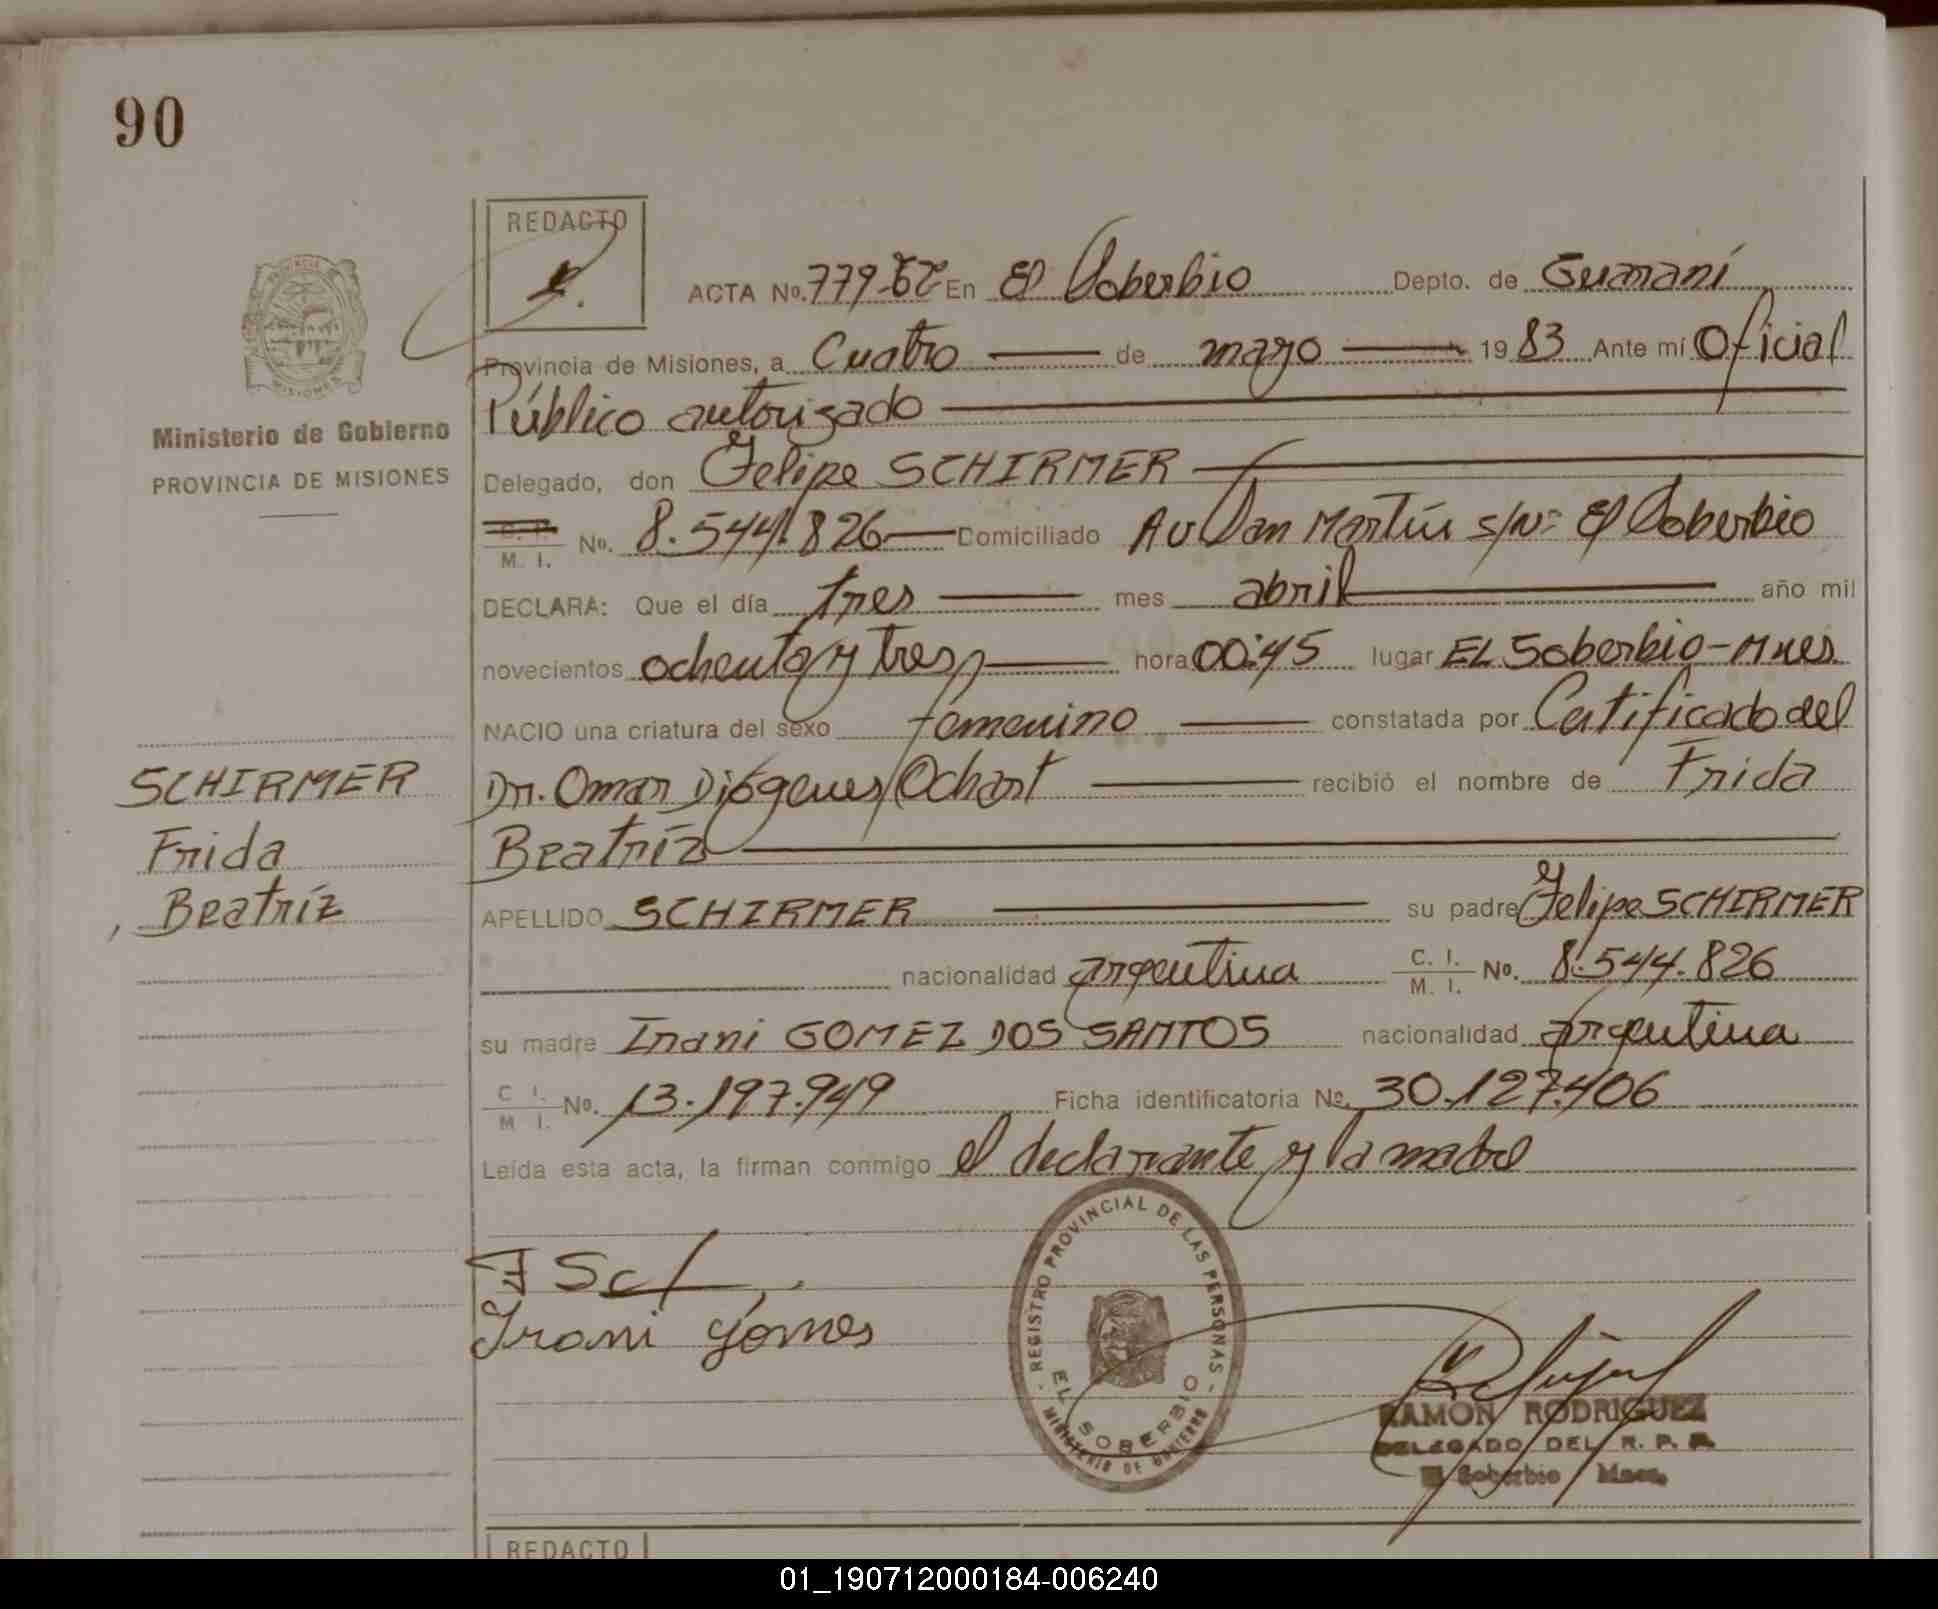 90
REDACTO
ACTA No. 779-62 En El Soberbio Depto. de Guaraní
Provincia de Misiones, a Cuatro de mayo 1983 Ante mí Oficial
Ministerio de Gobierno
PROVINCIA DE MISIONES
Público autorizado
Delegado, don Felipe SCHIRMER
C. I. M. I. No. 8.544.826 Domiciliado Av San Martín s/Nº El Soberbio
DECLARA: Que el día tres mes abril año mil
novecientos ochenta y tres hora 00:45 lugar EL Soberbio-Mnes
NACIO una criatura del sexo femenino constatada por Certificado del
SCHIRMER
Frida
Beatríz
Dr. Omar Diógenes Ochart recibió el nombre de Frida
Beatríz
APELLIDO SCHIRMER su padre Felipe SCHIRMER
nacionalidad argentina C. I. M. I. No. 8.544.826
su madre Irani GOMEZ DOS SANTOS nacionalidad argentina
C I. M I. No. 13.197.949 Ficha identificatoria No. 30.127.406
Leída esta acta, la firman conmigo el declarante y la madre
Irani Gomes
REGISTRO PROVINCIAL DE LAS PERSONAS
EL SOBERBIO
MINISTERIO DE GOBIERNO
RAMON RODRIGUEZ
DELEGADO DEL R. P. P.
El Soberbio Mnes.
REDACTO
01_190712000184-006240